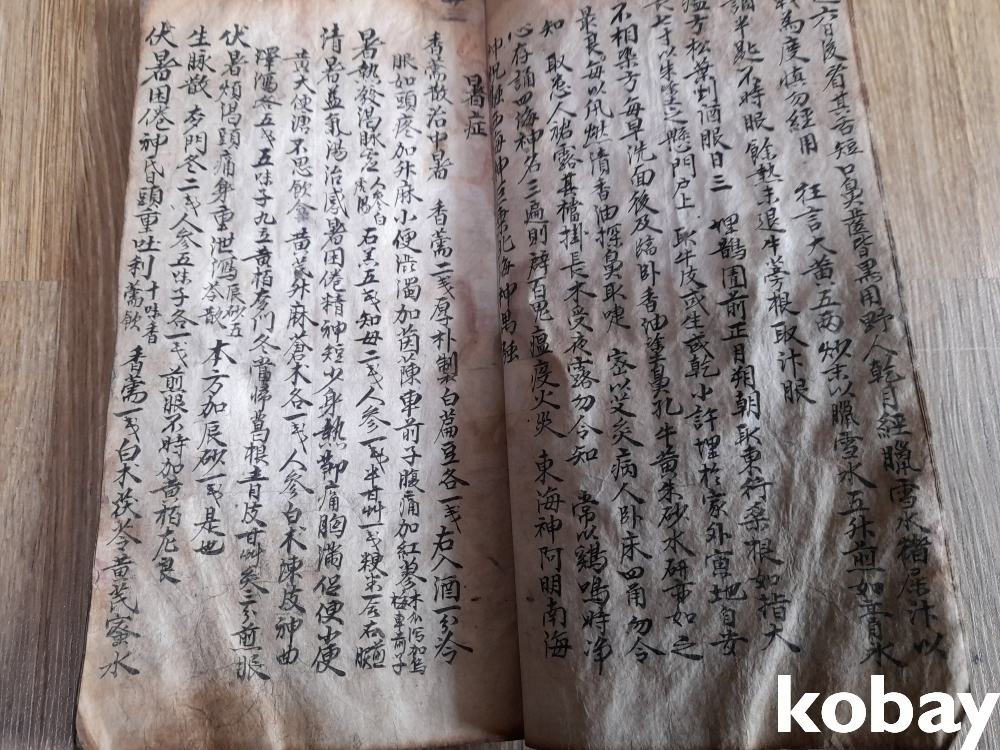 過六日後看其舌短口鼻齒皆黑用野人乾月經臘雪水猪尿汁以
爲度慎勿經用 狂言大黃五兩炒末以臘雪水五升煎如膏水
調半匙不時服 餘熱未退牛蒡根取汁服
方松葉剉酒服日三 埋鵲園前正月朔朝取東行桑根如指大
長七寸以朱塗之懸門戶上 取牛皮或生或乾小許埋於家外寅地自安
不相染方每早洗面後及臨臥香油塗鼻孔牛黃朱砂水研亦如之
最良每以紙撚清香油探鼻取嚏 密以艾灸病人臥床四角勿令
知 取急人褚露其襠掛長木受夜露勿令知 常以鷄鳴時淨
心存誦四海神名三遍則辟百鬼瘟疫火災 東海神阿明南海
神祝融西海神巨乘北海神禺強
暑症
香薷散治中暑 香薷二戔厚朴製白扁豆各一戔右入酒一分冷
服如頭疼加升麻小便澁濁加茵蔯車前子腹痛加紅蓼
暑熱發渴脉虛 人參白虎湯 石羔五戔知母二戔人參一戔半甘艸一戔粳米一合右煎服
清暑益氣湯治感暑困倦精神短少身熱節痛胸滿促便小便
黃大便溏不思飮食 黃芪升麻蒼朮各一戔人參白朮陳皮神曲
澤瀉各五分五味子九立黃栢麥門冬當歸葛根靑皮甘艸各三分煎服
伏暑煩渴頭痛身重泄瀉 辰砂五苓散 本方加辰砂一戔是也
生脉散 麥門冬二戔人參五味子各一戔煎服不時加黃栢尤良
伏暑困倦神昏頭重吐利 十味香薷飮 香薷一戔白朮茯苓黃芪蜜水
kobay